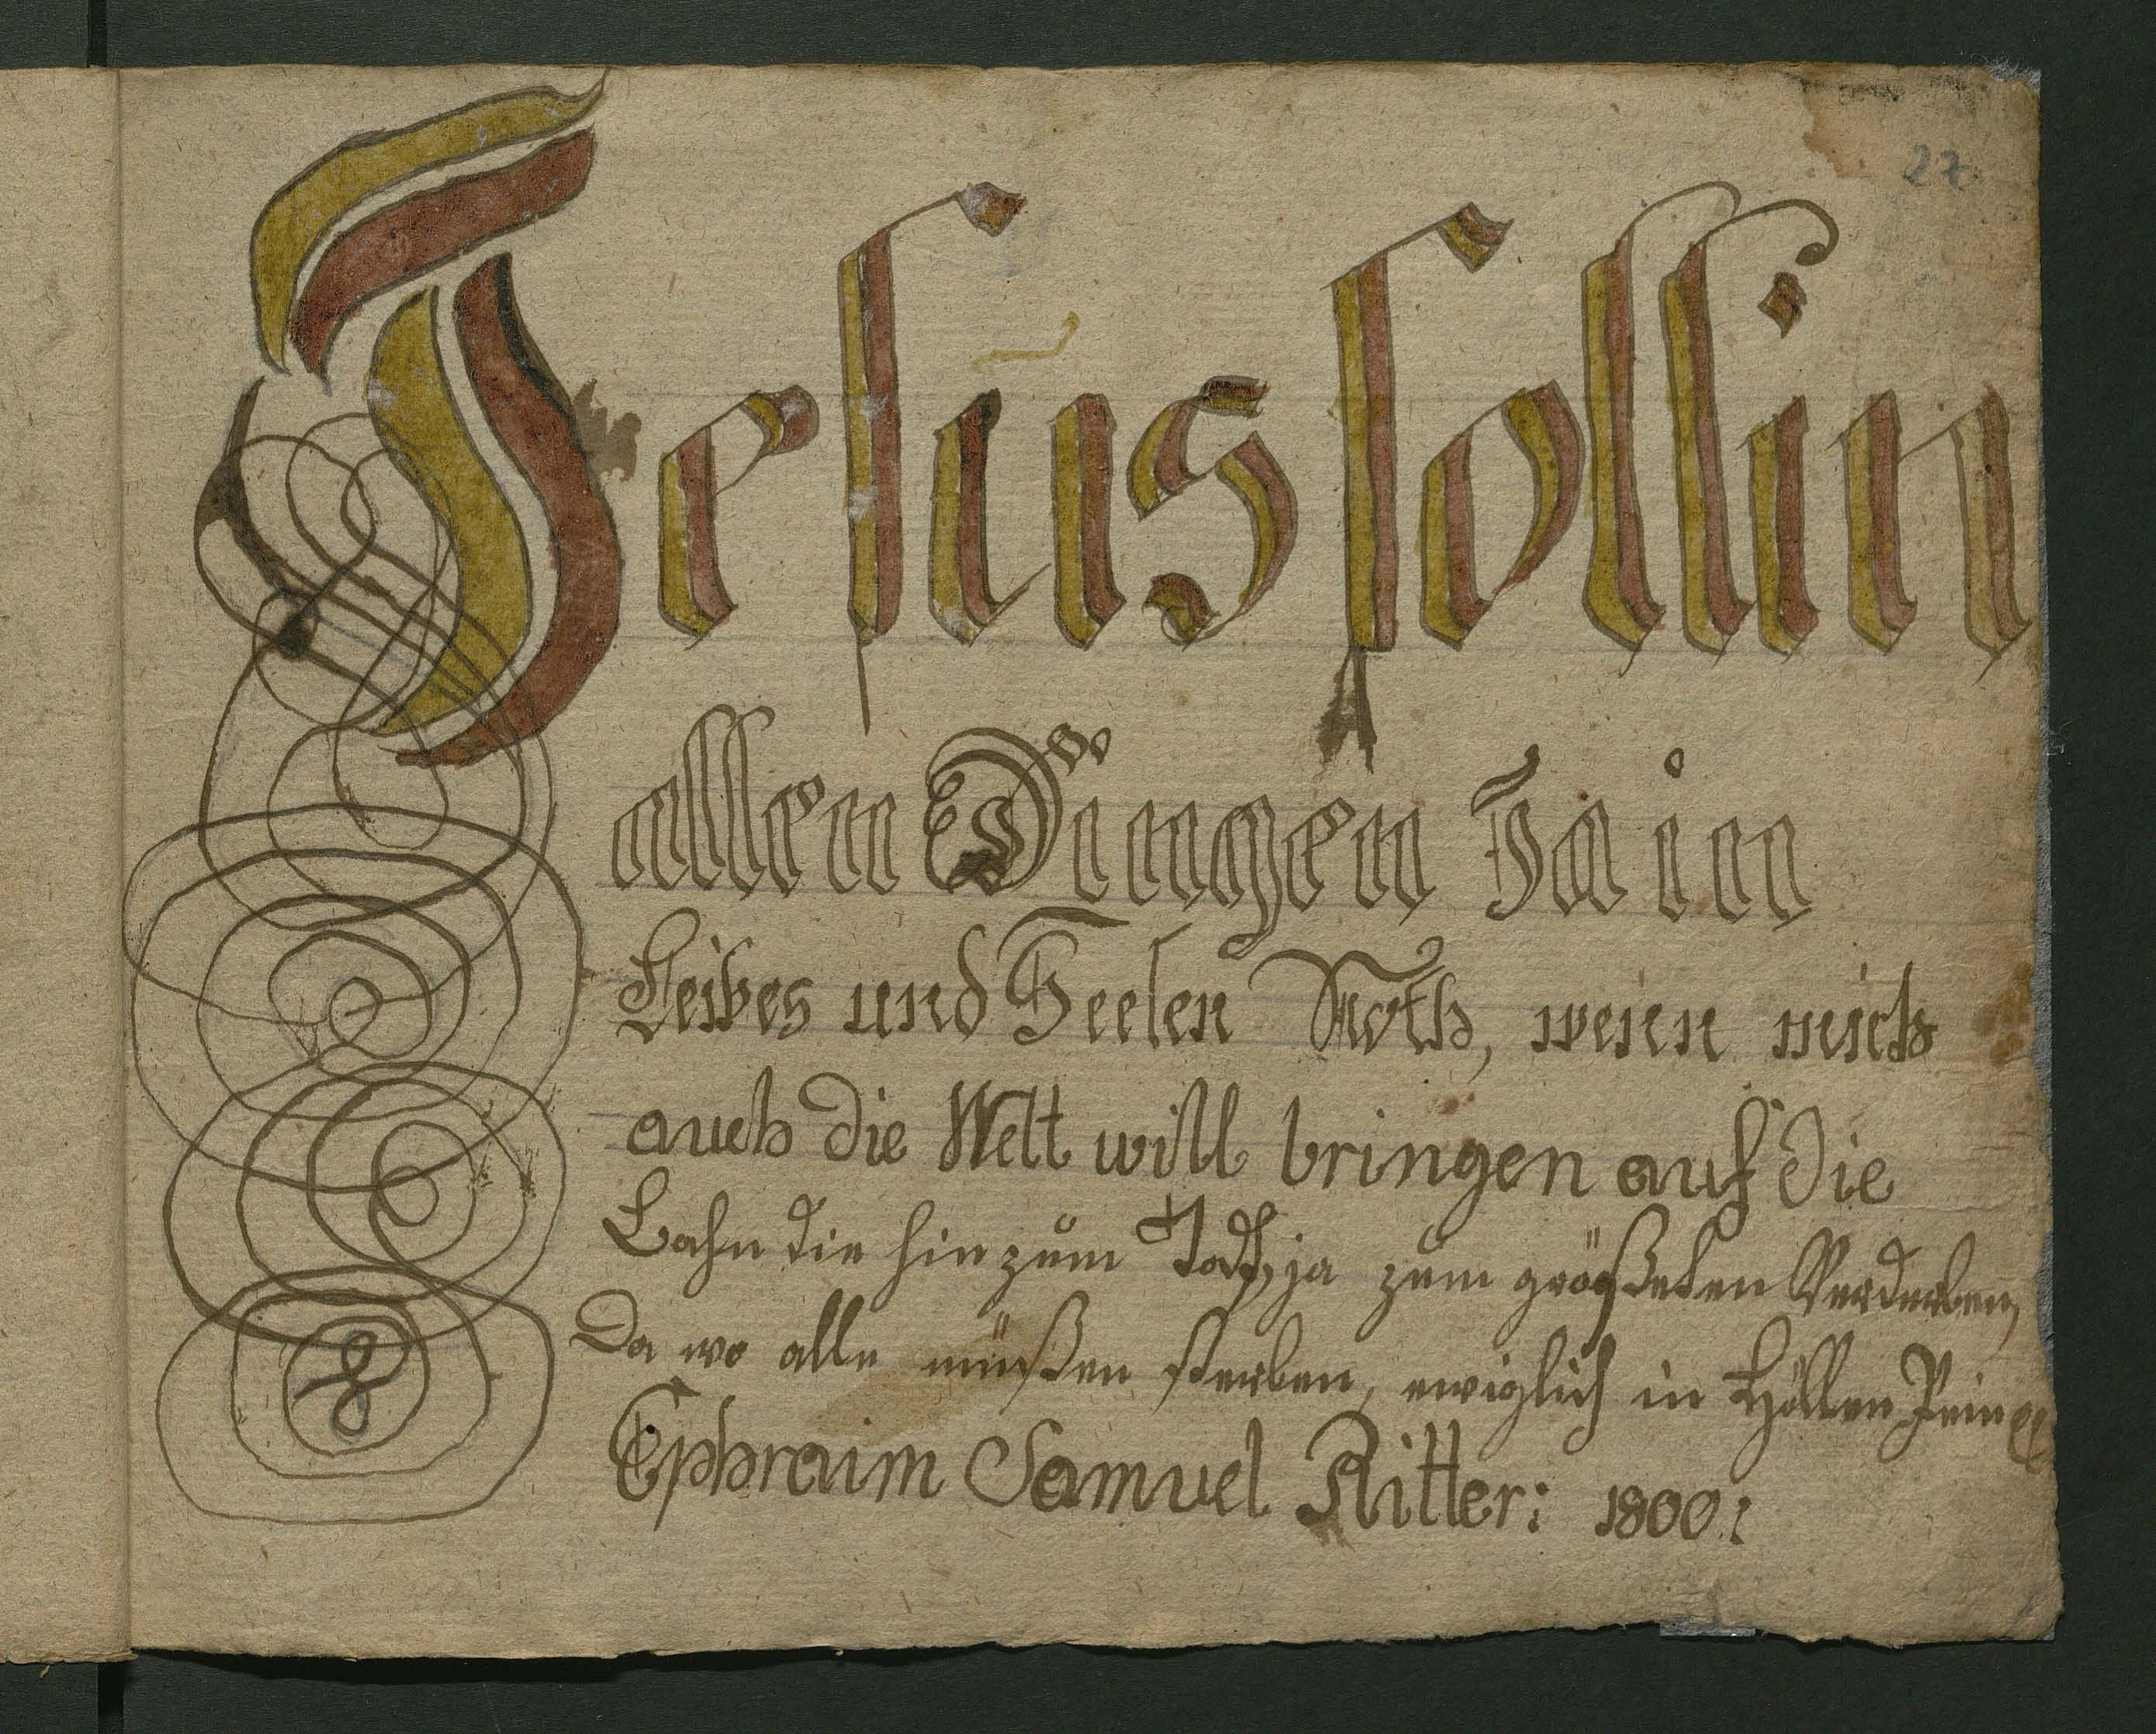 27
Jesus soll in
allen Dingen Ja in
Leibes und Seelen Noth, wenn mich
auch die Welt will bringen auf die
Bahn die hin zum Todt, ja zum größesten Verderben,
Da wo alle müßen sterben, ewiglich in Höllen Pein
Ephraim Samuel Ritter: 1800: